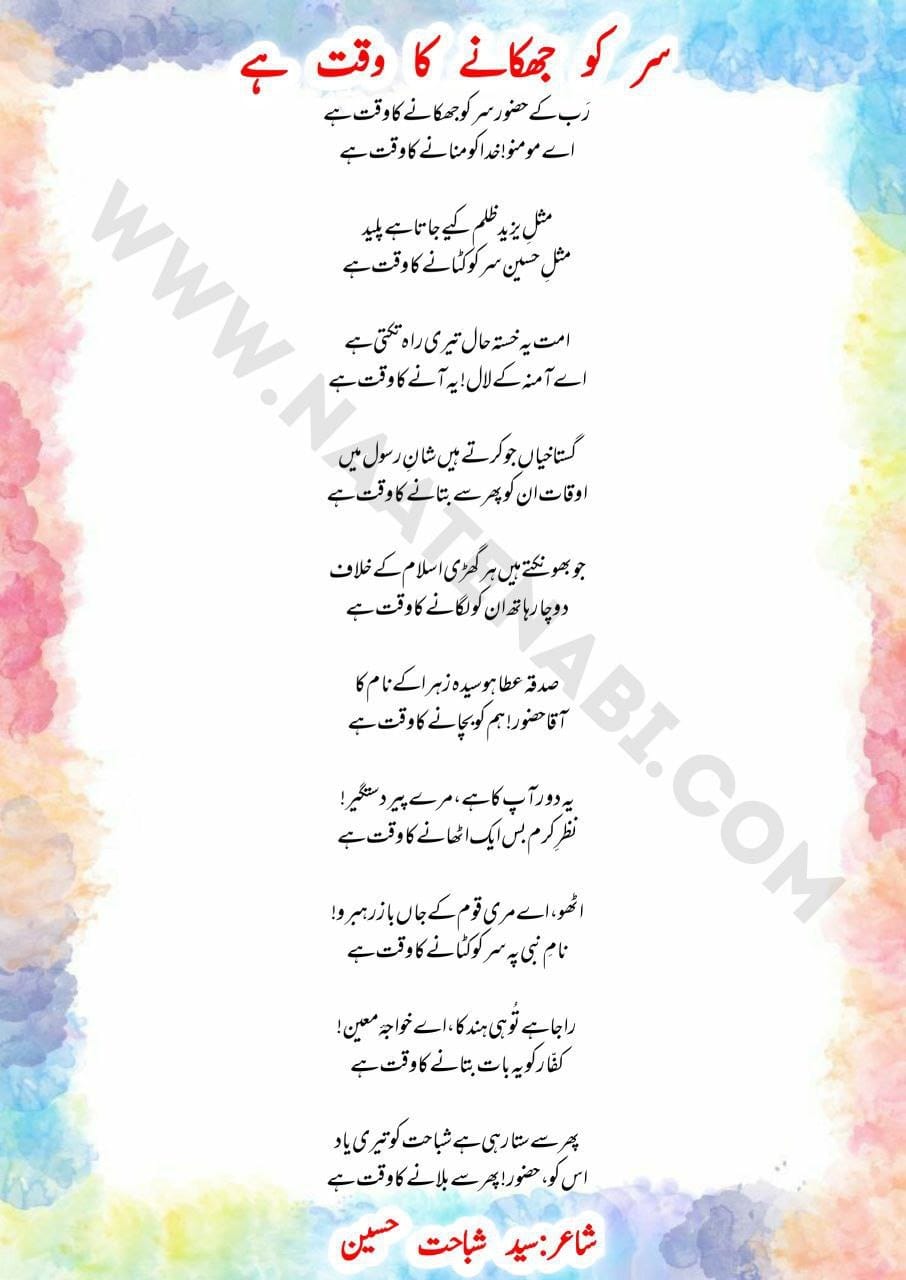 سر کو جھکانے کا وقت ہے
رَب کے حضور سر کو جھکانے کا وقت ہے
اے مومنو! خدا کو منانے کا وقت ہے
مثلِ یزید ظلم کیے جاتا ہے پلید
مثلِ حسین سر کو کٹانے کا وقت ہے
امت یہ خستہ حال تیری راہ تکتی ہے
اے آمنہ کے لال! یہ آنے کا وقت ہے
گستاخیاں جو کرتے ہیں شانِ رسول میں
اوقات ان کو پھر سے بتانے کا وقت ہے
جو بھونکتے ہیں ہر گھڑی اسلام کے خلاف
دو چار ہاتھ ان کو لگانے کا وقت ہے
صدقہ عطا ہو سیدہ زہرا کے نام کا
آقا حضور! ہم کو بچانے کا وقت ہے
یہ دور آپ کا ہے، مرے پیر دستگیر!
نظرِ کرم بس ایک اٹھانے کا وقت ہے
اٹھو، اے مری قوم کے جاں باز رہبرو!
نامِ نبی پہ سر کو کٹانے کا وقت ہے
راجا ہے تُو ہی ہند کا، اے خواجۂ معین!
کفّار کو یہ بات بتانے کا وقت ہے
پھر سے ستا رہی ہے شباحت کو تیری یاد
اس کو، حضور! پھر سے بلانے کا وقت ہے
شاعر: سید شباحت حسین
WWW.NAATENABI.COM